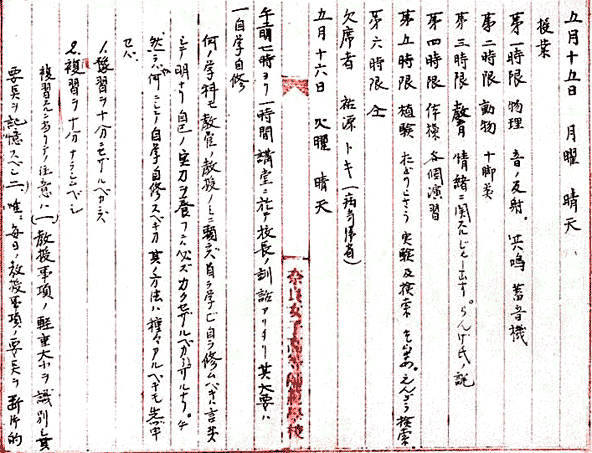 五月十五日 月曜 晴天
授業
第一時限 物理 音ノ反射、共鳴 蓄音機
第二時限 動物 十脚类
第三時限 教育 情緒ニ関スル らんげ氏ノ説
第四時限 体操 各個演習
第五時限 植験 実験及検索 えんどう 検索
第六時限 仝
欠席者 祐源トキ(病気帰省)
五月十六日 火曜 晴天
午前七時ヨリ一時間講堂ニ於テ校長ノ訓話アリタリ 其大要ハ
一自学自修
何ノ学科モ教官ノ教授ノミニ頼ラズ自ラ学ビ自ラ修ムベキハ言
明ナリ自己ノ実力ヲ養フニハ必ズカクセザルベカラザルナリ。
然ラバ何ニヨリ自学自修スベキカ其ノ方法ハ種々アルベキモ先ヅ
1.予習ヲ十分セザルベカラズ
2.複習ヲ十分ナスベシ
複習スルニ当リテノ注意ハ(一)教授事項ノ軽重大小ヲ識別シ其
要点ヲ記憶スベシ 二、唯、毎日ノ教授事項ノ要点ヲ断片的
奈良女子高等師範學校